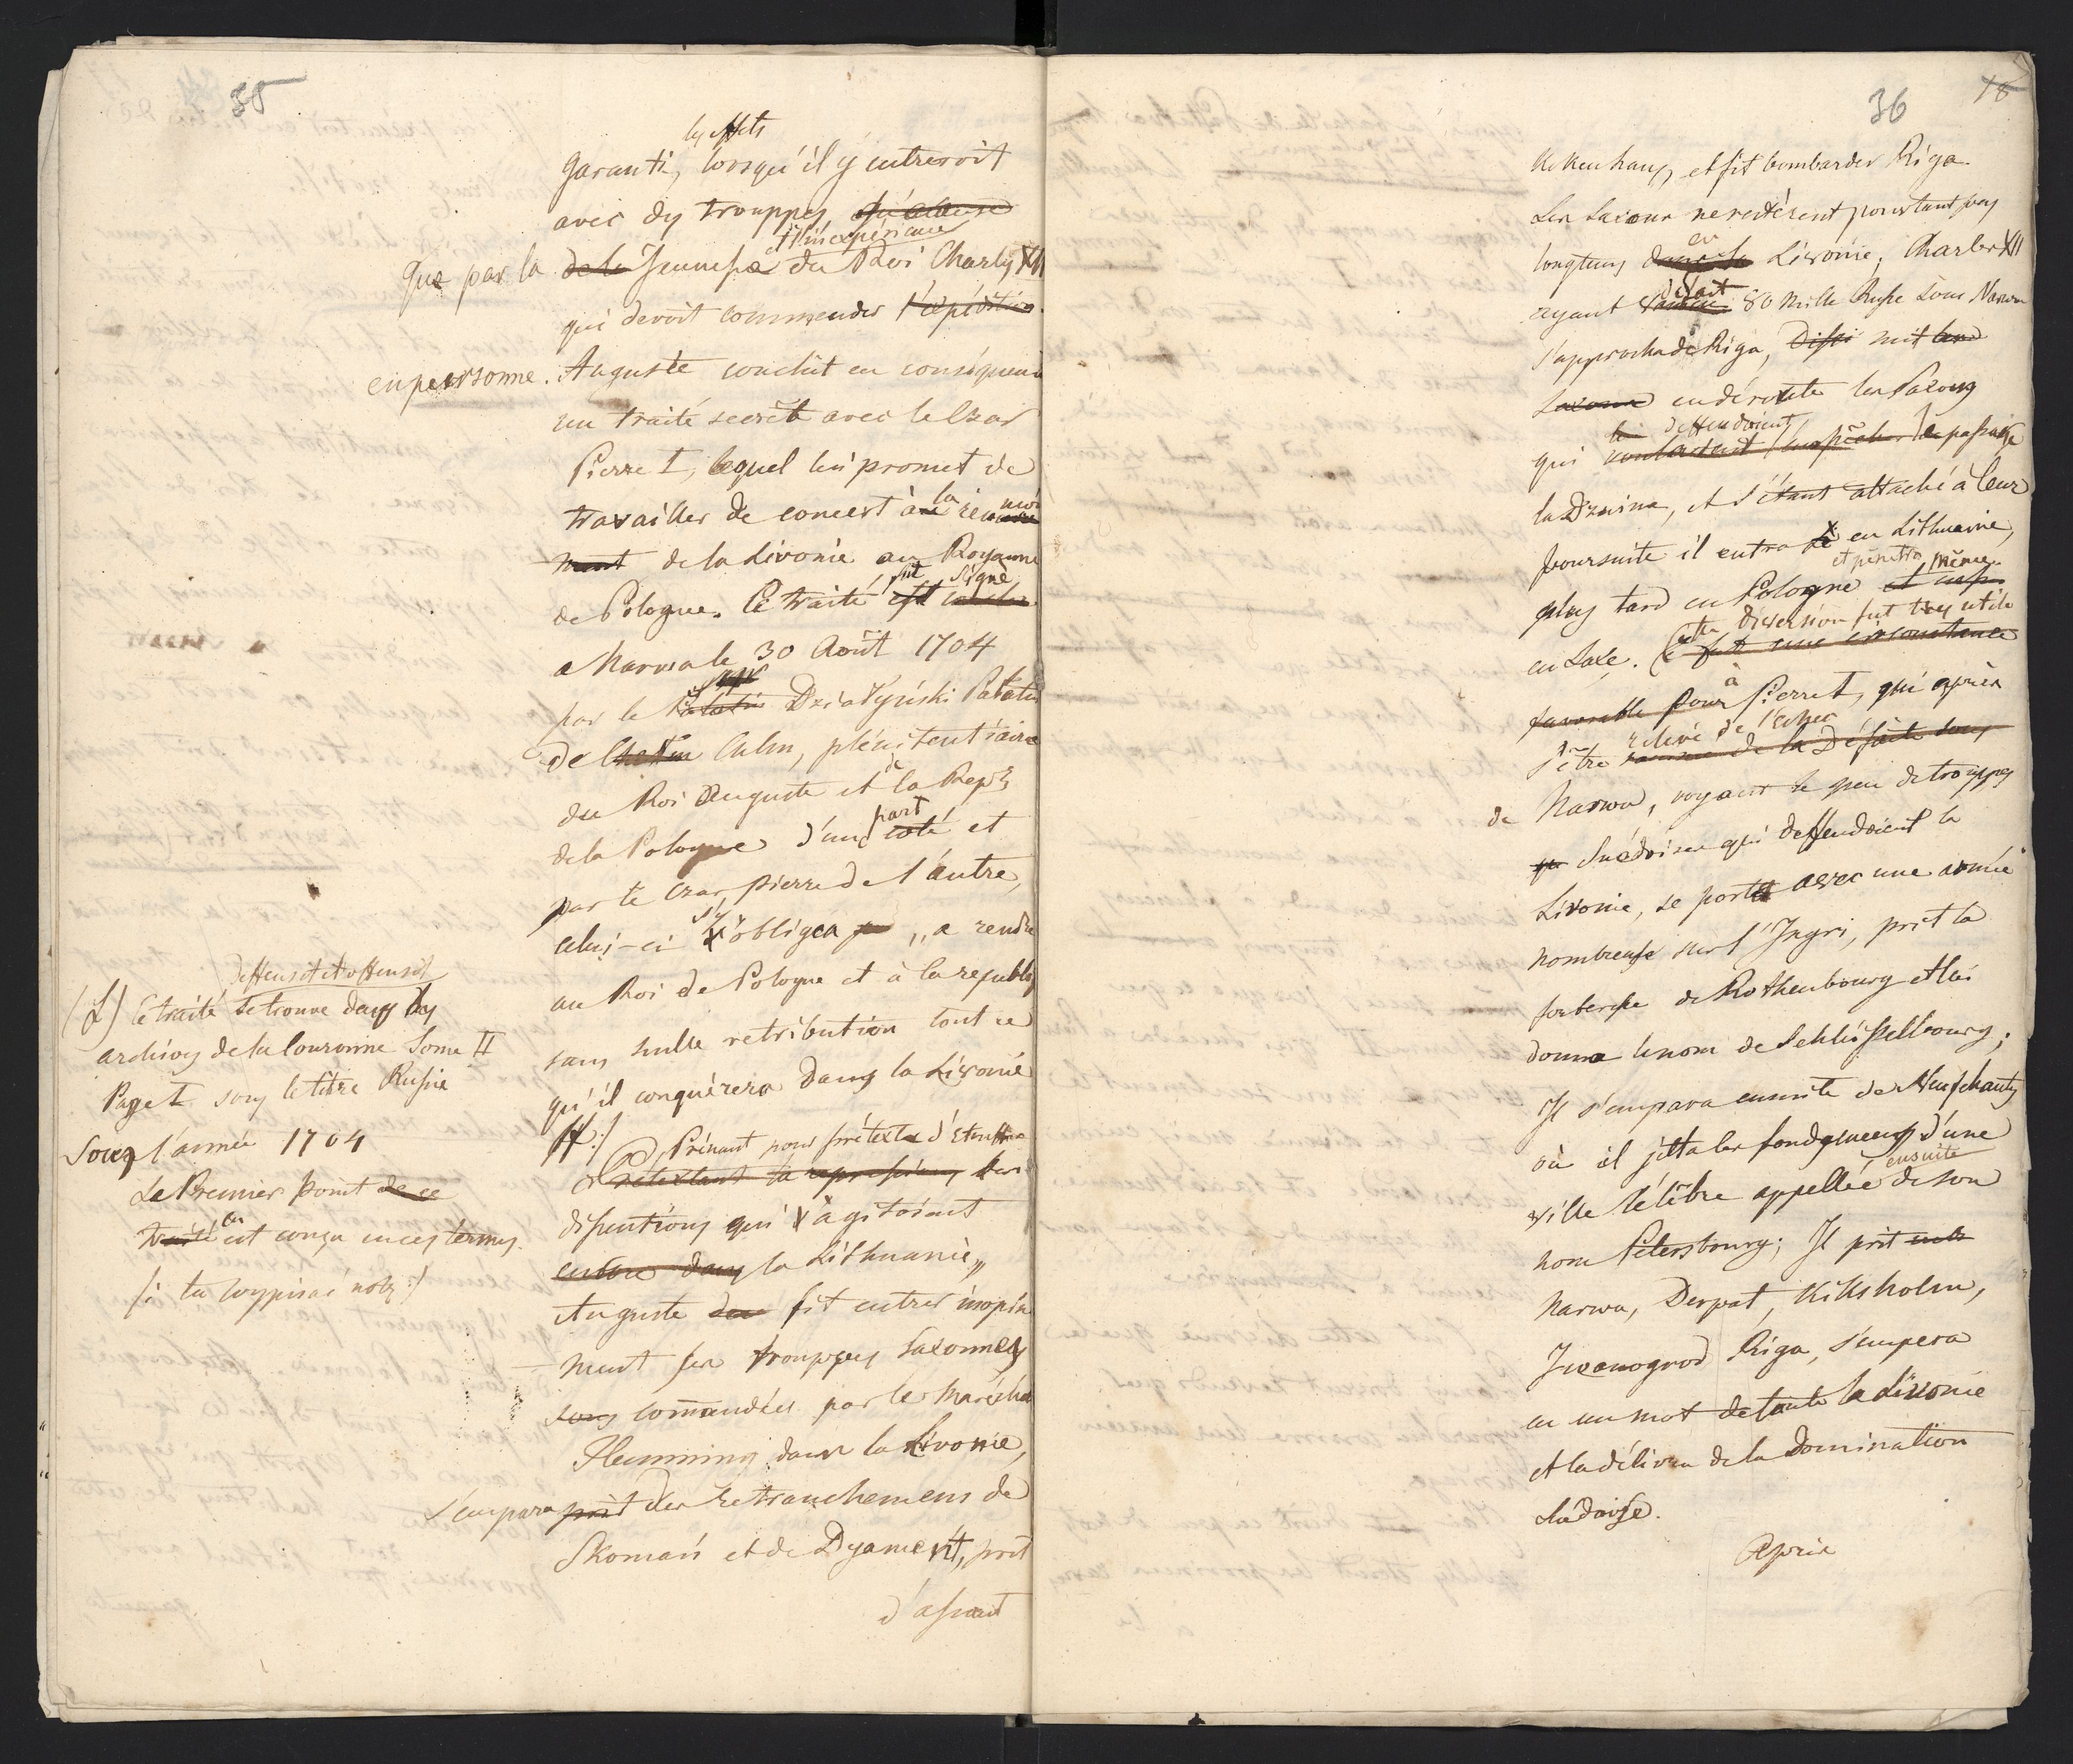 35
les effets
garanti, lorsqu'il y entreroit
avec des trouppes,
et l'inexpérience
que par la de la Jeunesse du Roi Charles XII
qui devoit commender l'éxpédition
en personne. Auguste conclût en conséquence
un traité secrèt avec le Czar
Pierre I, lequel lui promet de
travailler de concert à la réunion
ment de la Livonie au Royaume
de Pologne. Ce traité fut signé
a Narwa le 30 Août 1704
par le Palatin Dziatyński Palatin
de Chelm Culm, plénitentiaire
du Roi Auguste et de la Repq
de la Pologne d'une part coté et
par le Czar Pierre de l'autre,
celui-ci s'y obligea „a rendre
au Roi de Pologne et à la republiq
sans nulle retribution tout ce
qu'il conquérera dans la Livonie
Prénant pour prétexte d'étouffer
Prétextant les
disentions qui agitoient
encore dans la Lithuanie„
Auguste fit entrer inopiné
ment ses trouppes Saxonnes
sous commandées par le Maréchal
Flemming dans la Livonie,
s'empara prit des retranchemens de
Skomań et de Dyament, prit
d'assaut
deffensif et offensif
(£) Ce traité se trouve dans les
archives de la Couronne Tome II
Page I sous le titre Russie
Sous l'année 1704
Le Premier point de ce
traité en est conçu en ces termes.
/: tu wypisać notę :/
36
18
Kokenhaus, et fit bombarder Riga.
Les Saxons ne restèrent pourtant pas
longtems en dans la Livonie, Charles XII
ayant défait vaincu 80 Mille Russe sous Narwa
s'approcha de Riga, mit les
Saxons en déroute les Saxons
deffendoient
qui vouloient empêcher le passage
la Dzwina, et s'étant attaché à leur
poursuite il entra en Lithuanie,
et pénétra même
plus tard en Pologne
Cette diversion fut très utile
en Saxe. Ce fut une circonstance
à
favorable pour Pierre I, qui après
relevé de l'echec
s'être de la Défaite sous
de Narwa, voyant le peu de trouppes
Suédoises qui deffendoient la
Livonie, se porta avec une armée
nombreuse sur l'Ingri, prit la
forteresse de Rothenbourg et lui
donna le nom de Schlüsselbourg;
Il s'empara ensuite de Neuschantz
où il jetta les fondemens d'une
ensuite
ville célèbre appellée de son
nom Petersbourg; Il prit
Narwa, Derpat, Kiksholm,
Iwanogrod Riga, s'empera
en un mot de toute la Livonie
et la délivra de la Domination
Suédoise.
Après